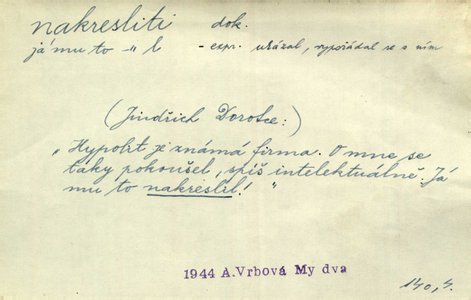 nakresliti dok.
já mu to -"l - expr. ukázal, vypořádal se s ním
(Jindřich Dorotce:)
„Hypolit je známá firma. O mne se
taky pokoušel, spíš intelektuálně. Já
mu to nakreslil! "
1944 A.Vrbová My dva
140, 4.